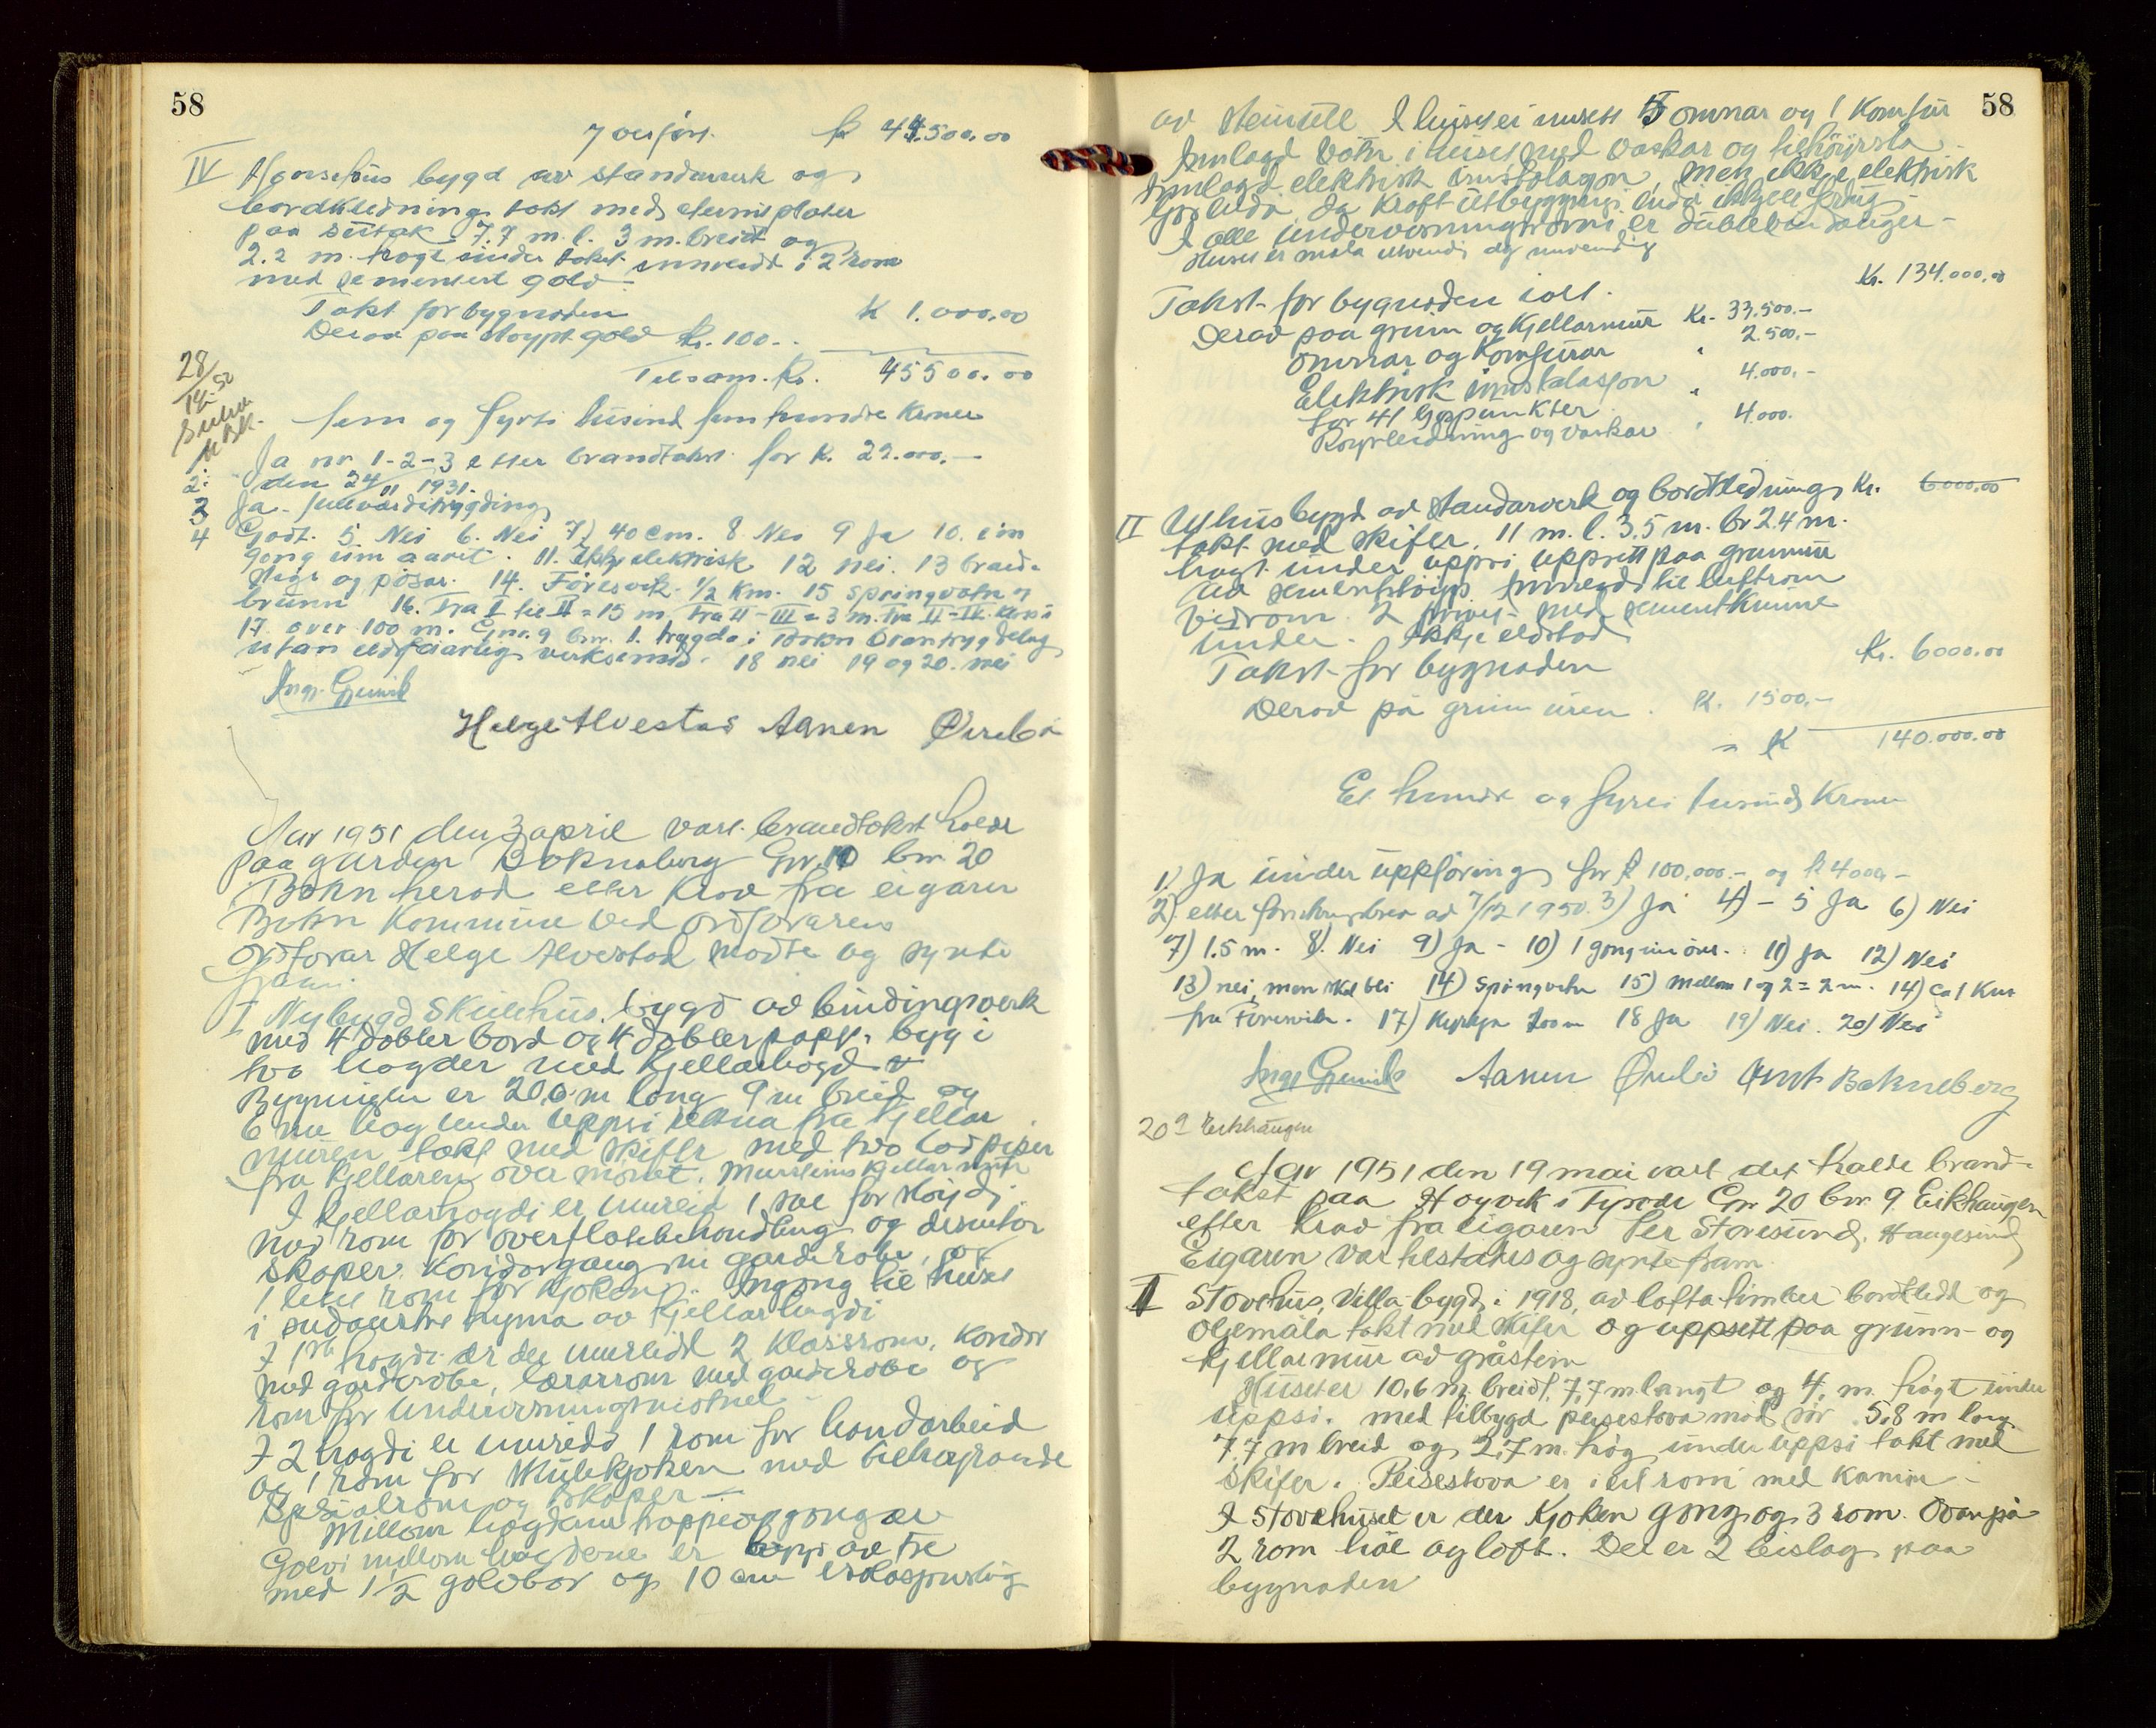 58
7 overført. kr 44.500.00
IV Hønsehus bygd av standarverk og
bordkledning takt med eternitplater
paa sutak 7.7 m. l. 3 m. breidt og
2.2 m. høgt under taket innreidt i 2 rom
med sementert golv
Takst for bygnaden K 1.000.00
Derav paa støypt golv Kr. 100..
Tilsam. Kr. 45500.00
28/12-50
fem og fyrti tusind fem hundre kroner
1. Ja nr 1-2-3 etter brandtakst for K. 22.000.-
2: den 24/11 1931.
3 Ja. fullverditrygding
4 Godt. 5 Nei 6. Nei 7) 40 cm. 8 Nei 9 Ja 10. ein
gong um aaret. 11. Ikkje elektrisk 12 nei. 13 brand-
stige og pøsar. 14. Føresvik. 1/2 km. 15 springvatn og
brunn 16. Fra I til II = 15 m Fra II-III = 3 m. Fra II-IV.
17. over 100 m. Gnr. 9 bnr. 1. trygda i Bokn Branntrygdelag
utan eldsfaarleg verksemd. 18 nei 19 og 20. nei
Helge Alvestad Aanen Øvrebø
Aar 1951 den 3 april vart brandtakst halde
paa garden Boknaberg Gnr. 10 bnr 20
Bokn herad etter krav fra eigaren
Bokn Kommune ved ordføraren
Ordførar Helge Alvestad møtte og synte
fram.
I Nybygd Skulehus, bygd av bindingsverk
med 4 dobler bord og 4 dobler papp, bygd i
two høgder med Kjellarhøgd
Bygningen er 20.0 m lang 9 m breid og
6 m høg under uppsi rekna fra kjellar
muren takt med skifer med two lodpiper
fra kjellaren over mønet. Mursteins kjellarmur
I Kjellarhøgdi er innreid 1 sal for sløyd,
med rom for overflatebehandling og
skaper. Koridorgang m garderobe, og
1 lite rom for kjøken. Ingong til huset
i sudaustre hyrna av kjellarhøgdi
I 1ste høgdi er der innreidt 2 klasserom. Koridor
med garderobe, lærarrom med garderobe og
rom for undervisningsmateriel
I 2 høgdi er innreidd 1 rom for handarbeid
og 1 rom for skulekjøken med tilhøyrande
Spesialrom og skaper
Millom høgdene trappeopgongar
Golvi millom høgdene er bygi av tre
med 1 1/2 golvbor og 10 cm
58
av steinull I huset er innsett 5 omnar og 1 Komfur
Innlagd vatn i huset med vaskar og tilhøyrsla
Innlagd elektrisk installasjon, men ikkje elektrisk
straum enda, da kraft utbyggningi enda ikkje er ferdig
I alle undervisningsromi er dubble vindauger-
Huset er mala utvendig og innvendig
Takst for bygnaden i alt. Kr. 134.000.00
Derav paa grunn og Kjellarmur Kr. 33.500.-
omnar og Komfurar " 2.500.-
Elektrisk installasjon " 4.000.-
for 41 lyspunkter
Røyrleidning og vaskar " 4.000.
II Uthus bygd av standarverk og bordkledning Kr. 6000.00
takt med skifer. 11 m. l. 3.5 m. br 2.4 m.
høgt under uppsi uppsett paa grunnmur
av sementstøyp. Innreidt til luftrom
vedrom 2 privet med sementkumme
under. Ikkje eldstad
Takst for bygnaden Kr. 6000.00
Derav på grunnmuren. K. 1500.-
= K 140.000.00
Et hundre og fyrti tusind Kroner
1) Ja under uppføring for k 100,000.- og k 4000.-
2) etter forsikringsbrev av 7/12 1950. 3) Ja 4) - 5 Ja 6) Nei
7) 1.5 m. 8). Nei 9) Ja - 10) 1 gong um året. 11) Ja 12) Nei
13) nei, men skal bli 14) Springvatn 15) Mellom 1 og 2 = 2 m. 14) Ca 1 Km
fra Føresvik. 17) Kyrkja 200 m 18 Ja 19) Nei. 20) Nei
Aanen Øvrebø Amt Bokneberg
20/9 Eikhaugen
Aar 1951 den 19 mai vart det halde brand-
takst paa Høyvik i Tysvær Gnr 20 bnr 9 Eikhaugen
efter krav fra eigaren Per Storesund, Haugesund
Eigaren var tilstades og synte fram
I Stovehus, Villa bygd i 1918, av lafta timber bordkledt og
oljemåla takt med skifer og uppsett paa grunn- og
kjellarmur av gråstein
Huset er 10,6 m. breidt, 7,7 m langt og 4, m. høgt under
uppsi. med tilbygd peisestova mot sør 5.8 m lang
7.7 m breid og 2,7 m. høg under uppsi takt med
skifer. Peisestova er i eit rom med kamin
I Stovehuset er der Kjøken gong og 3 rom. Ovanpå
2 rom hál og loft. Det er 2 bislag paa
bygnaden